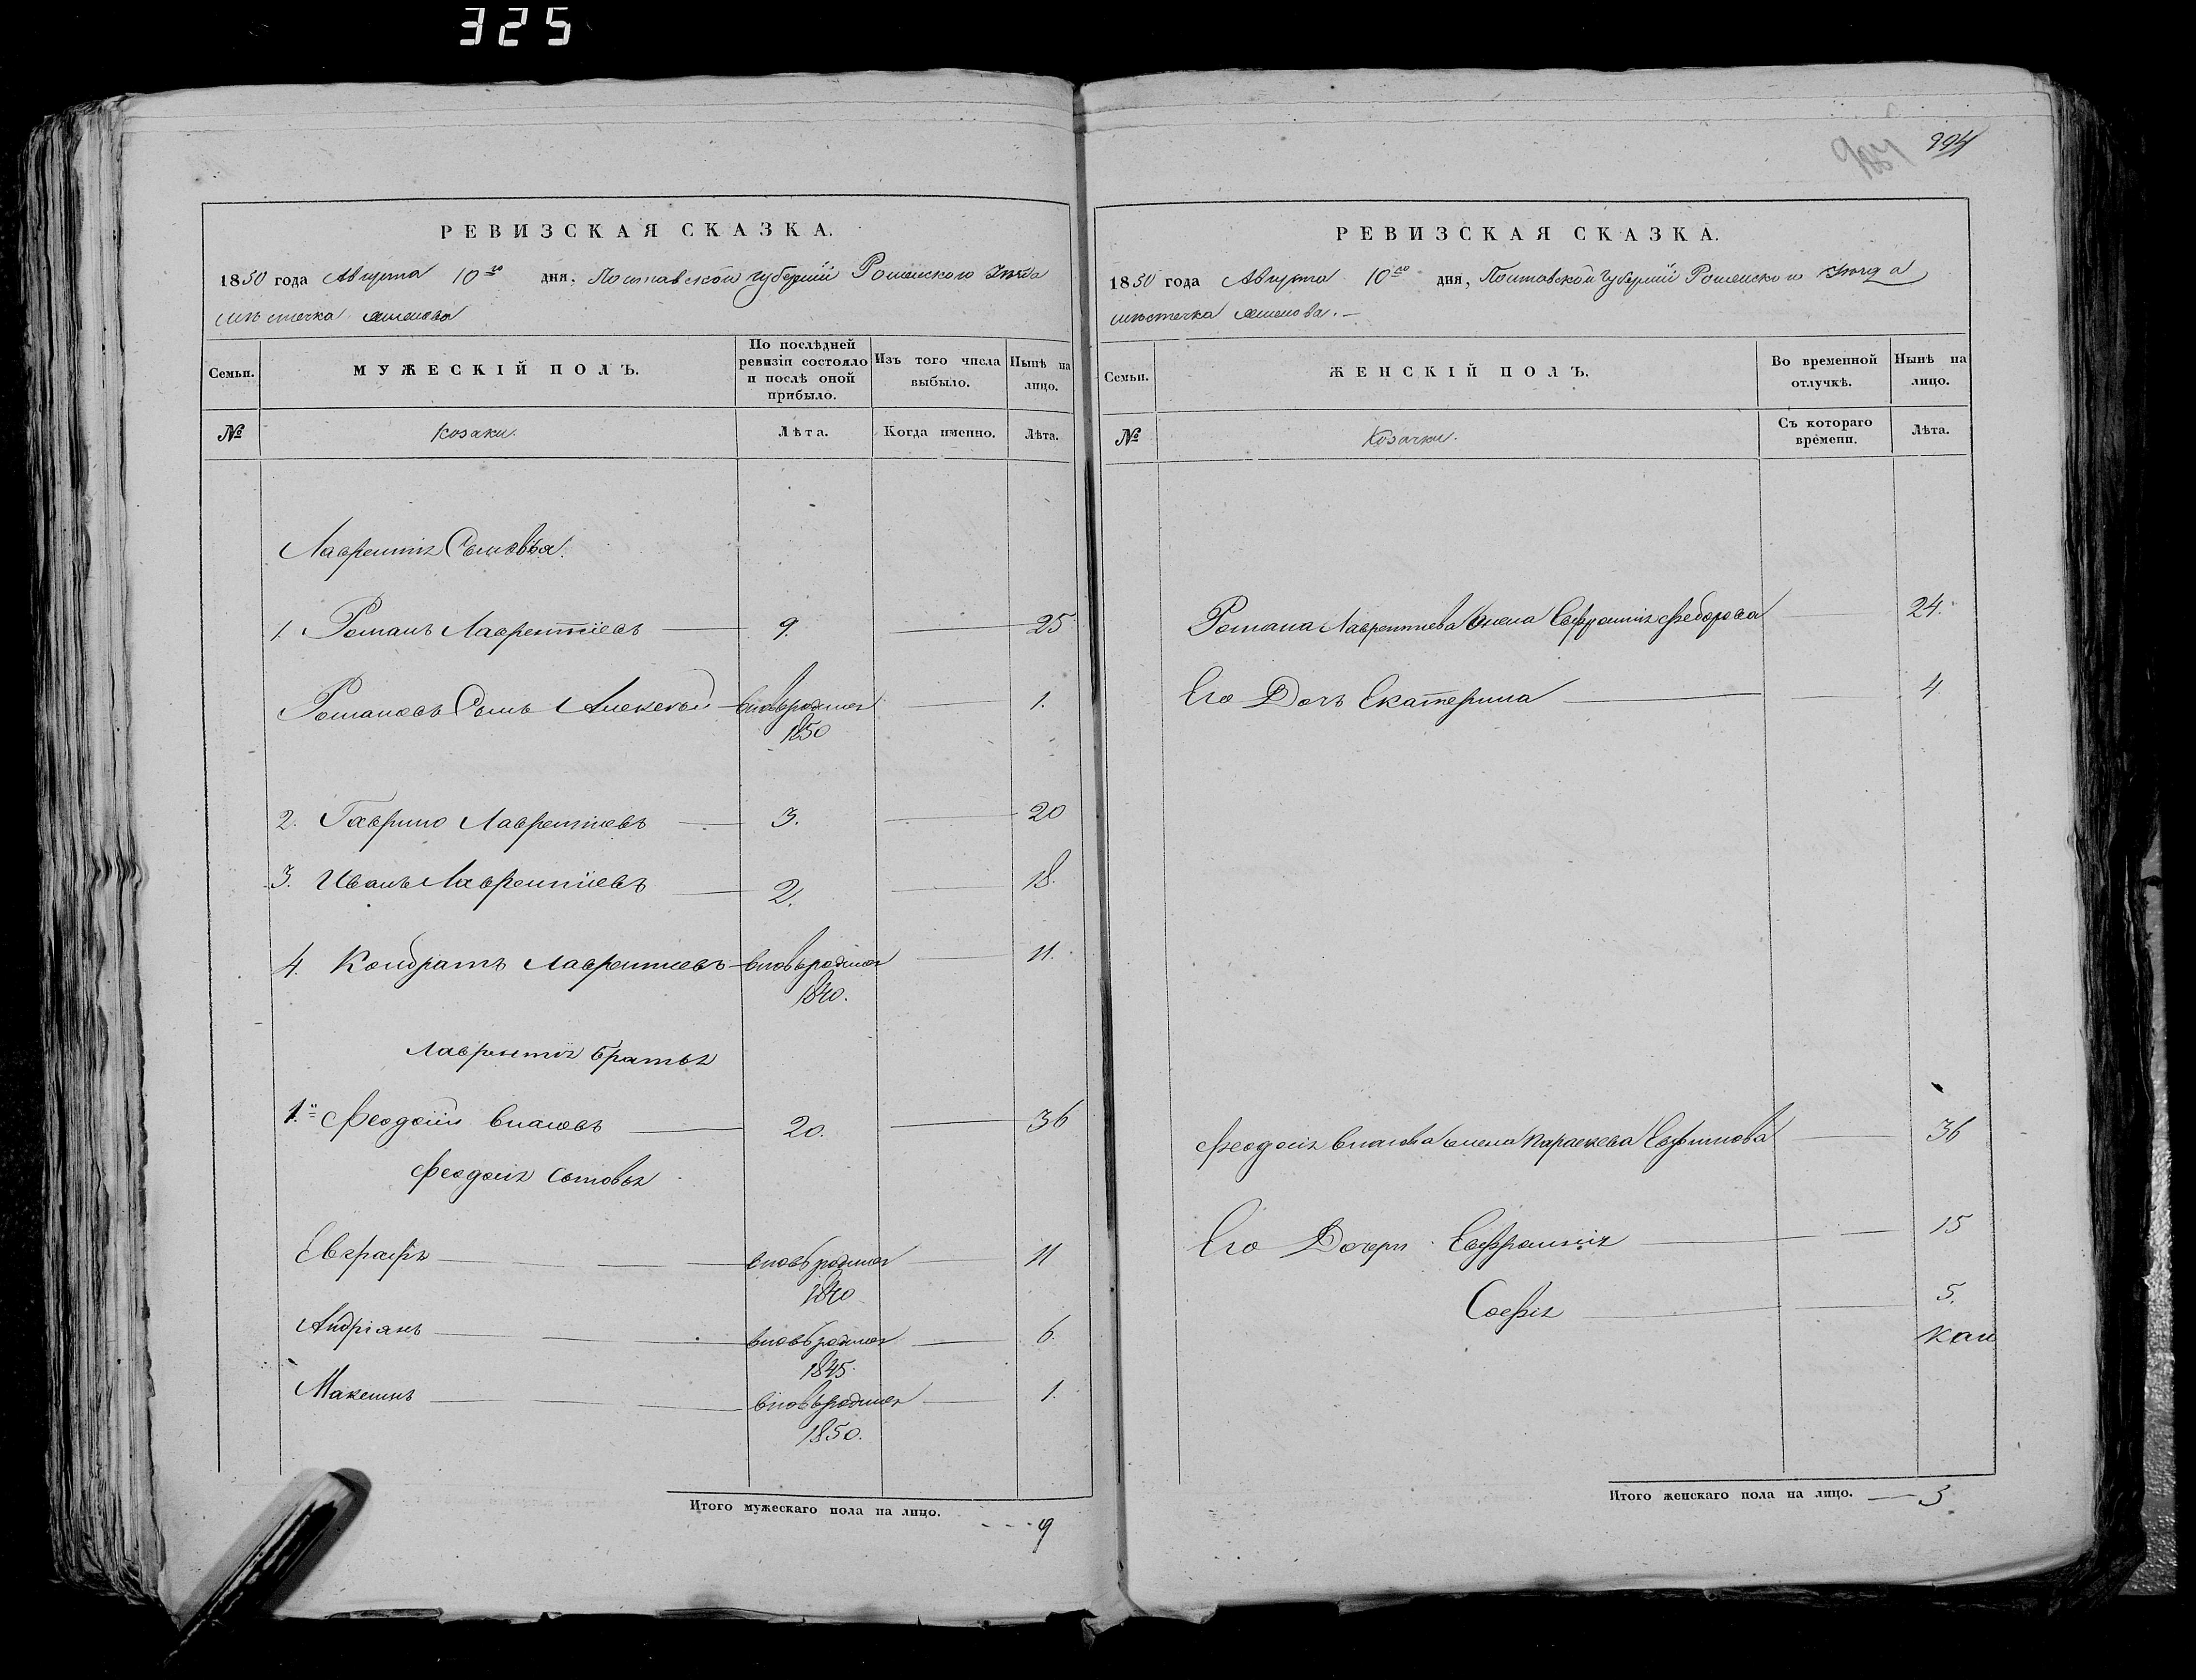 325
994
РЕВИЗСКАЯ СКАЗКА.
1850 года Августа 10го дня, Полтавской губерніи Роменскаго уѣзда
мѣстечка
Семьи.
МУЖЕСКІЙ ПОЛЪ.
По послѣдней ревизіи состояло и послѣ оной прибыло.
Изъ того числа выбыло.
Нынѣ на лицо.
№
Козаки.
Лѣта.
Когда именно.
Лѣта.
Лаврентія Сыновья.
1. Романъ Лаврентіевъ 9. 25
Романовъ Сынъ Алексѣй вновьрожден 1.
1850
2. Гаврило Лаврентіевъ 3. 20
3. Иванъ Лаврентіевъ 2. 18.
4. Кондратъ Лаврентіевъ вновьрожден 11.
1840.
Лаврентія братья
1й Феодосій Власовъ 20. 36
Феодосія сыновья
Евграфъ вновьрожден 11
1840
Андріянъ вновьрожден 6.
1845.
Максимъ вновьрожден 1.
1850.
Итого мужескаго пола на лицо. 9
РЕВИЗСКАЯ СКАЗКА.
1850 года Августа 10го дня, Полтавской губерніи Роменскаго уѣзда
мѣстечка
Семьи.
ЖЕНСКІЙ ПОЛЪ.
Во временной отлучкѣ.
Нынѣ на лицо.
№
Козачки.
Съ котораго времени.
Лѣта.
Романа Лаврентіева жена Евфросинія Федорова 24.
Его Дочь Екатерина 4
Феодосія Власова жена Параскева Евфимова 36
Его Дочери Евфросинія 15
Софія 5.
Итого женскаго пола на лицо. 3